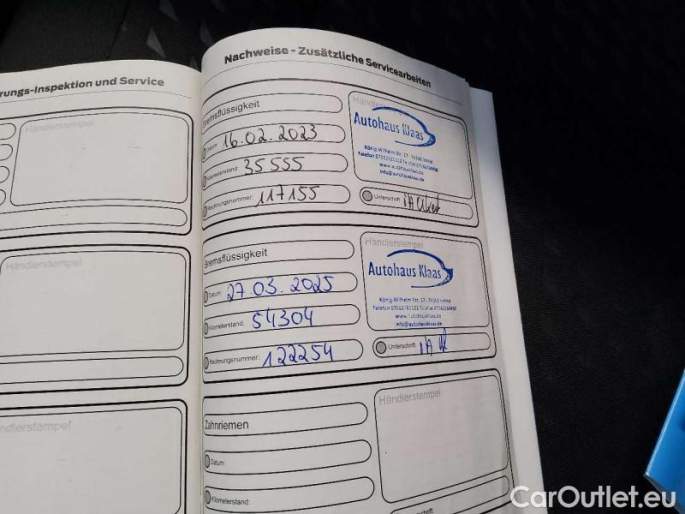 rungs-Inspektion und Service
Händlerstempel
Händlerstempel
Händlerstempel
Nachweise - Zusätzliche Servicearbeiten
Bremsflüssigkeit
Datum: 16.02.2023
Kilometerstand: 35555
Rechnungsnummer: 117155
Händlerstempel
Autohaus Klaas
Unterschrift: iA
Bremsflüssigkeit
Datum: 27.03.2025
Kilometerstand: 54304
Rechnungsnummer: 122254
Händlerstempel
Autohaus Klaas
www.autohausklaas.de
info@autohausklaas.de
Unterschrift: iA
Zahnriemen
Datum:
Kilometerstand:
Händlerstempel
CarOutlet.eu